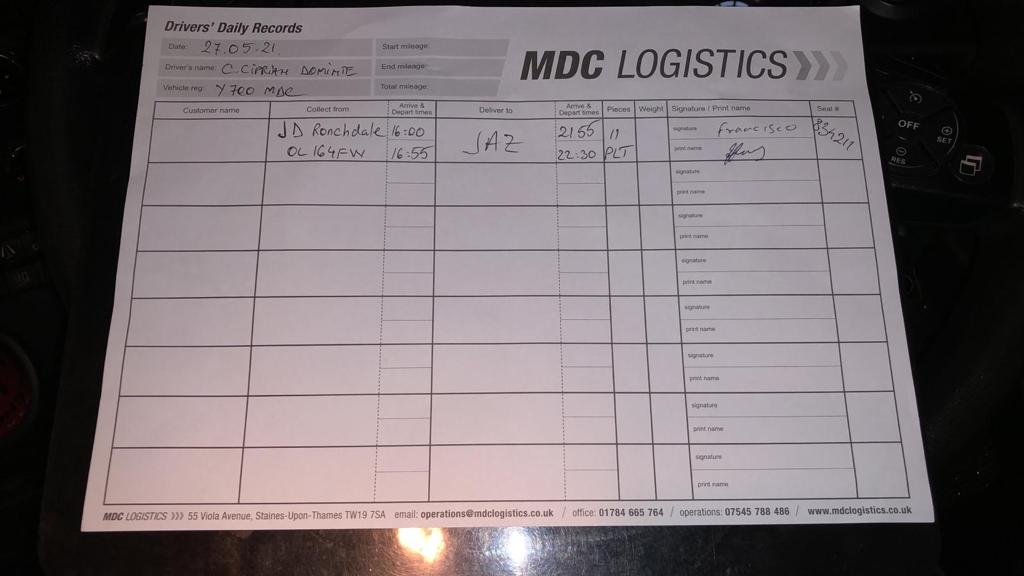 Drivers' Daily Records
Date: 27.05.21. Start mileage:
Driver's name: C. CIPRIAN DOMINTE End mileage:
Vehicle reg: Y700 MDC Total mileage:
MDC LOGISTICS
Customer name Collect from Arrive & Depart times Deliver to Arrive & Depart times Pieces Weight Signature / Print name Seal #
JD Ronchdale 16:00 JAZ 2155 11 signature Francisco
OL164FW 16:55 22:30 PLT print name
signature
print name
signature
print name
signature
print name
signature
print name
signature
print name
signature
print name
signature
print name
MDC LOGISTICS >>> 55 Viola Avenue, Staines-Upon-Thames TW19 7SA email: operations@mdclogistics.co.uk / office: 01784 665 764 / operations: 07545 788 486 / www.mdclogistics.co.uk
OFF
SET
RES